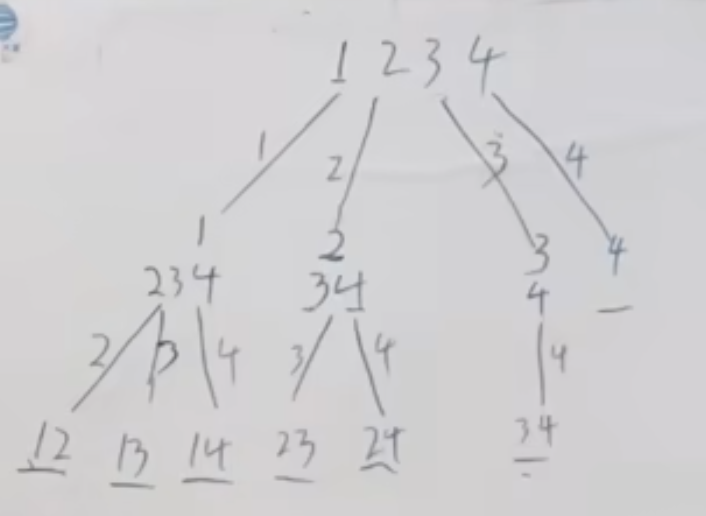 1 2 3 4
1 2 3 4
1 2 3 4
234 34 4
2 3 4 3 4 4
12 13 14 23 24 34